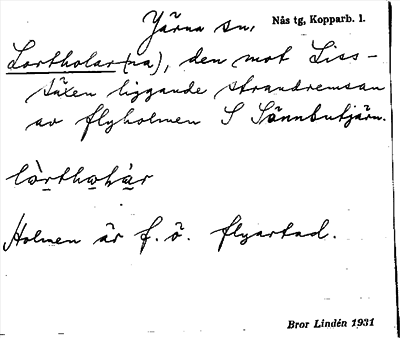 Järna sn. Nås tg, Kopparb. l.
Lortholar(na), den mot Liss-
täxen liggande strandremsan
av flyholmen S Sännbutjärn.
lòrthohàr
Holmen är f.ö. flyartad.
Bror Lindén 1931